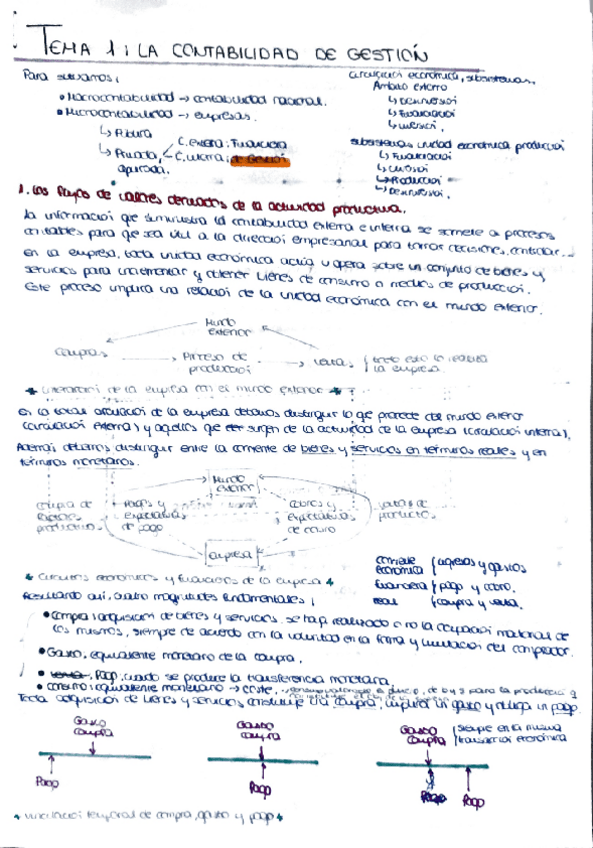 TEMA 1: LA CONTABILIDAD DE GESTIÓN
Para situarnos,
• Macrocontabilidad → contabilidad nacional.
• Microcontabilidad → empresas.
↳ Pública
↳ Privada
C. externa: Financiera
C. interna: de Gestión
aplicada.
Circulación económica, subsistemas.
Ámbito externo
↳ Desinversión
↳ Financiación
↳ Inversión.
subsistemas unidad económica producción
↳ Financiación
↳ Inversión
↳ Producción
↳ Desinversión.
1. Los flujos de valores derivados de la actividad productiva.
La información que suministra la contabilidad externa e interna se somete a procesos
contables para que sea útil a la dirección empresarial para tomar decisiones, controlar...
en la empresa, toda unidad económica actúa u opera sobre un conjunto de bienes y
servicios para incrementar y obtener bienes de consumo o medios de producción.
Este proceso implica una relación de la unidad económica con el mundo exterior.
Mundo
exterior
compras → Proceso de → ventas
producción
la empresa.
* de la empresa con el mundo exterior *
En la total circulación de la empresa debemos distinguir lo que procede del mundo exterior
(circulación externa) y aquellos que surgen de la actividad de la empresa (circulación interna).
Además debemos distinguir entre la corriente de bienes y servicios en términos reales y en
términos monetarios.
Mundo
exterior
compra de
factores
productivos
Pagos y
expectativas
de pago
cobros y
expectativas
de cobro
ventas de
productos
empresa
corriente
económica / ingresos y gastos
financiera / pago y cobro.
real / compra y venta.
* Circuitos económicos y financieros de la empresa *
Resultando así, cuatro magnitudes fundamentales:
• Compra: adquisición de bienes y servicios, se haya realizado o no la ocupación material de
los mismos, siempre de acuerdo con la voluntad en la forma y limitación del comprador.
• Gasto, equivalente monetario de la compra.
• Pago, cuando se produce la transferencia monetaria.
• consumo: equivalente monetario → coste,
Toda adquisición de bienes y servicios constituye una compra, implica un gasto y obliga un pago.
Gasto
compra
Pago
Gasto
compra
Pago
Gasto
compra / siempre en la misma
transacción económica
Pago
Pago
* vinculación temporal de compra, gasto y pago *